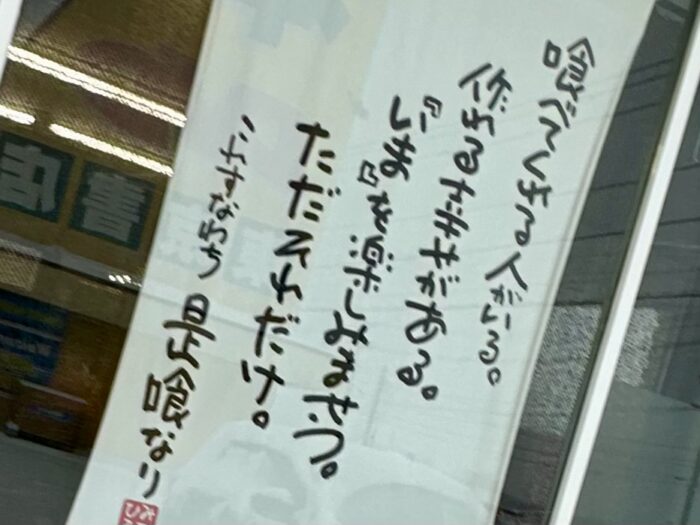 喰べてくれる人がいる。
作れる幸せがある。
『いま』を楽しみませう。
ただそれだけ。
これすなわち 是喰なり
書店